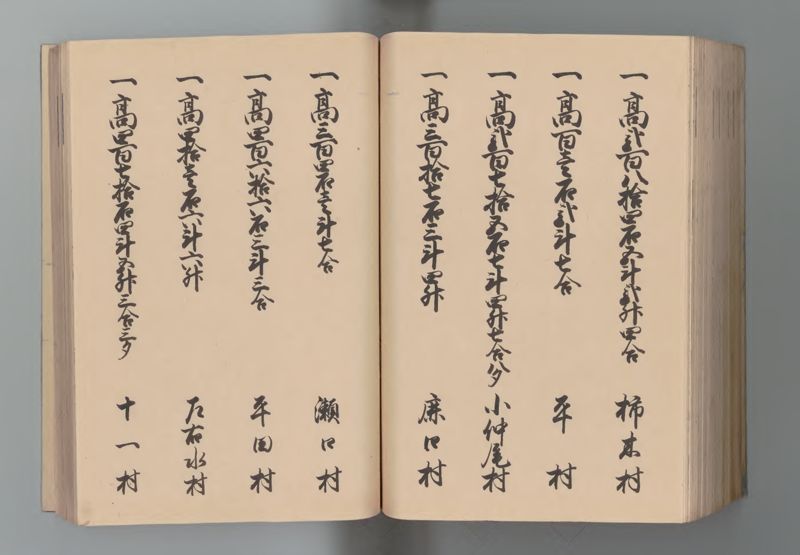 一高弐百八拾四石五斗弐升四合 柿木村
一高百壱石弐斗七合 平村
一高弐百七拾五石七斗四升七合八夕 小仲尾村
一高三百拾七石三斗四升 廉口村
一高三百四石壱斗七合 瀬口村
一高四百六拾六石三斗三合 平田村
一高四拾壱石六斗六升 左右水村
一高四百七拾石四斗五升三合三夕 十一村